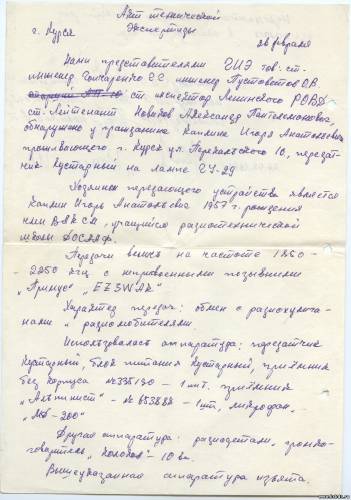 Акт технической
г. Курск экспертизы
26 февраля
Нами представителями ГИЭ тов. ст.
инженер Гончаренко инженер Пустоветов О.В.
ст. инспектор Ленинского РОВД
ст. лейтенант Новиков Александр Пантелеймонович,
обнаружено у гражданина Каплина Игоря Анатольевича,
проживающего г. Курск ул. Перекальского 10, передат-
чик кустарный на лампе ГУ-29
Хозяином передающего устройства является
Каплин Игорь Анатольевич 1957 г. рождения
член ВЛКСМ, учащийся радиотехнической
школы ДОСААФ.
Передачи велись на частоте 1850-
2250 кгц с неправочными позывными
"Примус", "EZ3WAK"
Характер передач: обмен с радиохулига-
нами и радиолюбителями
Использовалась аппаратура: передатчик
кустарный, блок питания кустарный, приёмник
без корпуса № 335190 - 1 шт. приёмник
№ 853888 - 1 шт, микрофон
"МД-200"
Другая аппаратура: радиодетали, громко-
говоритель, "колокол" - 10 вт.
Вышеуказанная аппаратура изъята.